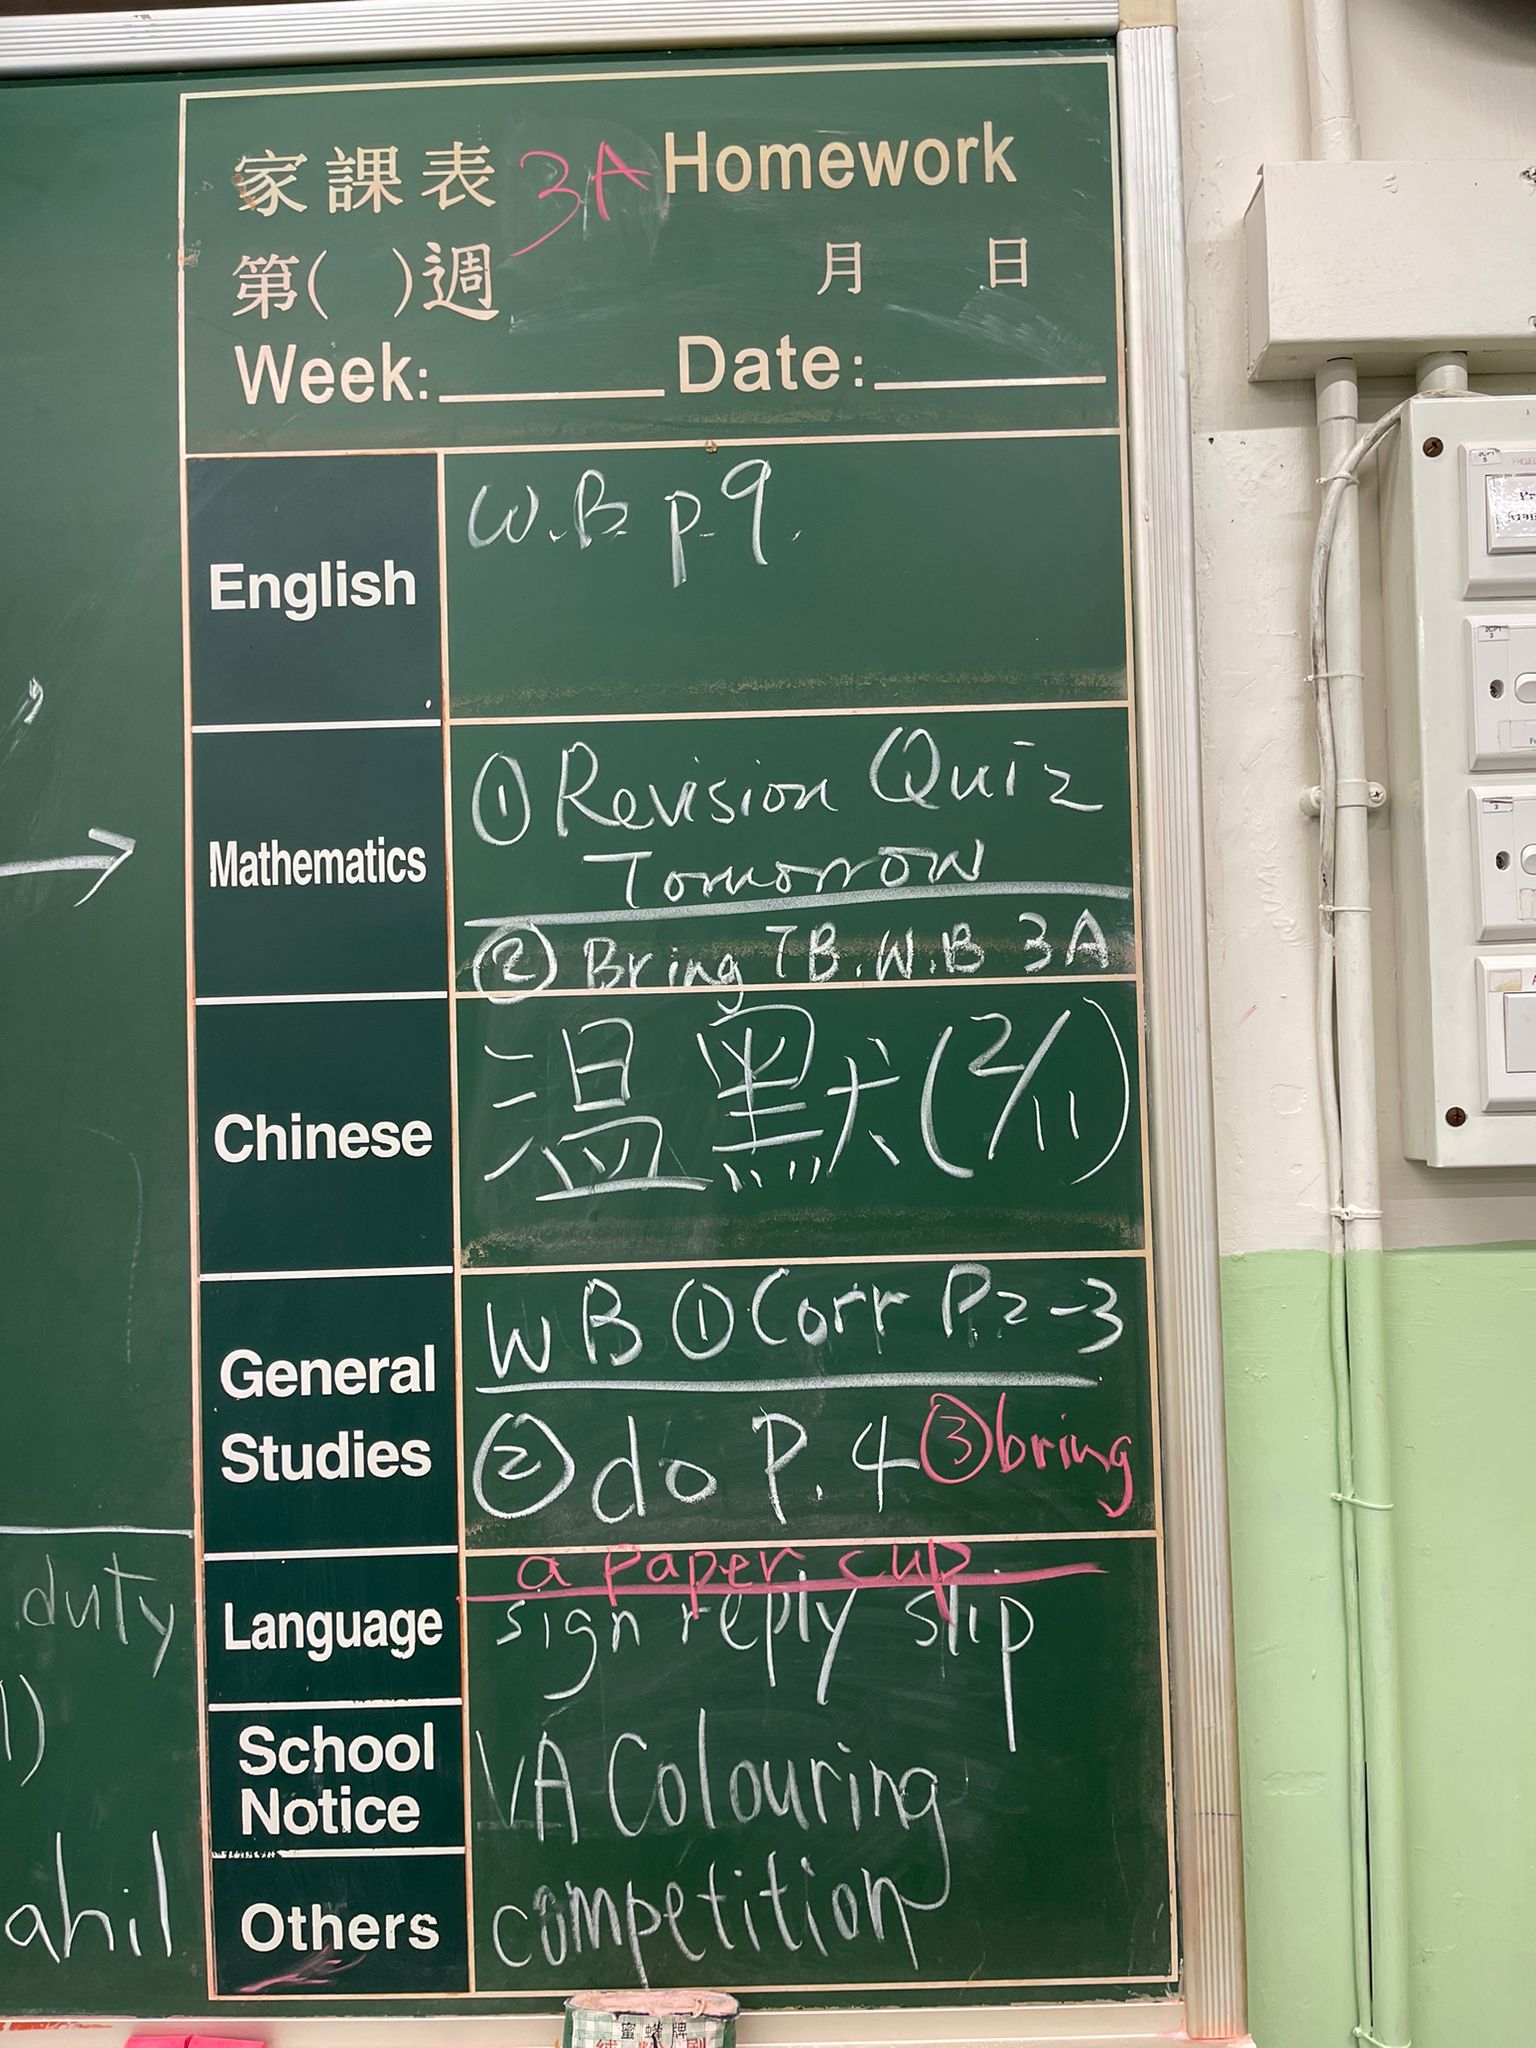 家課表 3A Homework
第( )週 月 日
Week: Date:
English
W.B. p.9.
Mathematics
① Revision Quiz
Tomorrow
② Bring TB.W.B 3A
Chinese
温默(2/11)
General
Studies
WB ① Corr P.2-3
② do P.4 ③ bring
a paper cup
Language
sign reply slip
School
Notice
VA Colouring
Others
competition
duty
1)
ahil
蜜蜂牌